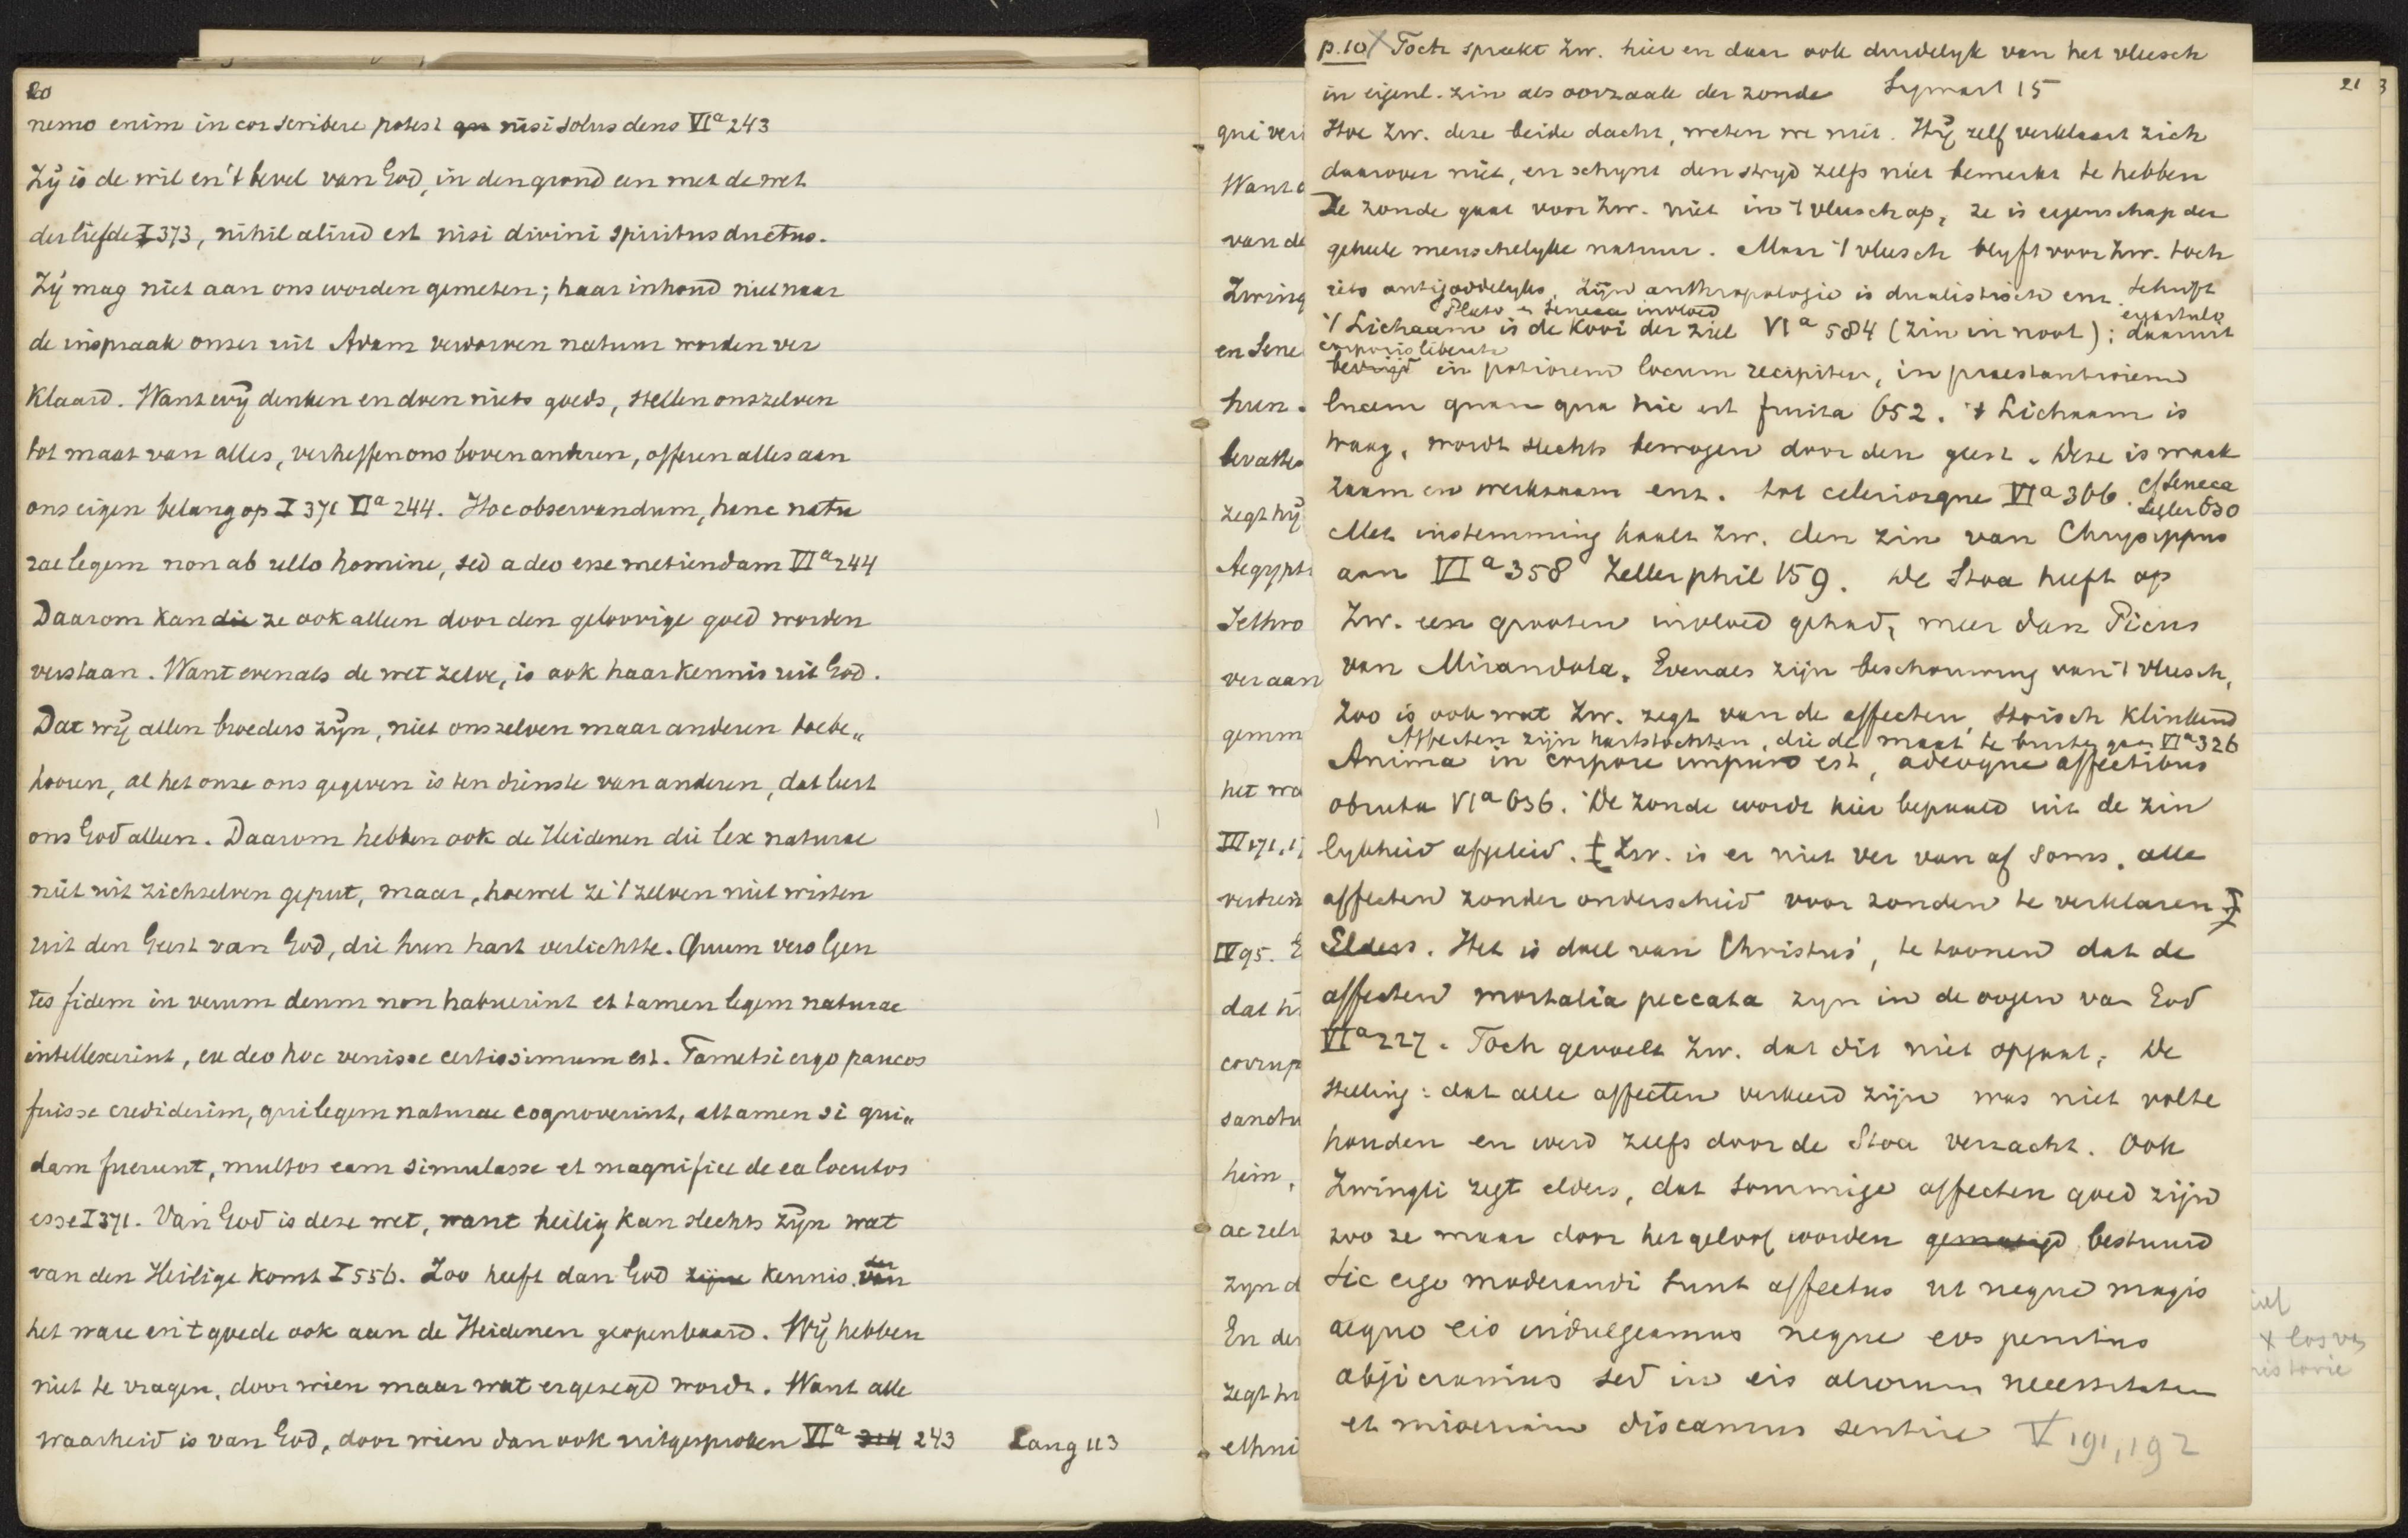 20
nemo enim in cor scribere potest qu nisi solus deus VIa 243
Zij is de wil en 't bevel van God, in den grond een met de wet
der liefde I 373, nihil aliud est nisi divini spiritus ductus.
Zij mag niet aan ons worden gemeten; haar inhoud niet naar
de inspraak onzer uit Adam verdorven natuur worden ver
klaard. Want wij denken en doen niets goeds, stellen onszelven
tot maat van alles, verheffen ons boven anderen, offeren alles aan
ons eigen belang op I 371 VIa 244. Hoc observandum, hanc natu
rae legem non ab ullo homine, sed a deo esse metiendam VIa 244
Daarom kan die ze ook alleen door den geloovige goed worden
verstaan. Want evenals de wet zelve, is ook haar kennis uit God.
Dat wij allen broeders zijn, niet onszelven maar anderen toebe„
hooren, al het onze ons gegeven is ten dienste van anderen, dat leert
ons God alleen. Daarom hebben ook de Heidenen die lex naturae
niet uit zichzelven geput, maar, hoewel ze 't zelven niet wisten
uit den Geest van God, die hun hart verlichtte. Quum vero Gen
tes fidem in verum deum non habuerint et tamen legem naturae
intellexerint, ex deo hoc venisse certissimum est. Tametsi ergo paucos
fuisse crediderim, qui legem naturae cognoverint, attamen si qui„
dam fuerunt, multos eam simulasse et magnifice de ea locutos
esse I 371. Van God is deze wet, want heilig kan slechts zijn wat
van den Heilige komt I 556. Zoo heeft dan God zijne kennis der van
het ware en 't goede ook aan de Heidenen geopenbaard. Wij hebben
niet te vragen, door wien maar wat er gezegd wordt. Want alle
waarheid is van God, door wien dan ook uitgesproken VIa 314 243 Lang 113
21
3
qui veri
Want
van de
Zwing
en Sene
hun.
bevatte
zegt hij
Aegypt
Jethro
ver aan
gemm
het wa
III 171, 1
verdrein
IV 95. E
dat h
corrup
sanctu
heim,
ac zelv
zijn d
En der
zegt hi
ethni
p. 10 X Toch spreekt Zw. hier en daar ook duidelijk van het vleesch
in eigenl. zin als oorzaak der zonde Sigwart 15
Hoe Zw. deze beide dacht, weten we niet. Hij zelf verklaart zich
daarover niet, en schijnt den strijd zelfs niet bemerkt te hebben
De zonde gaat voor Zw. niet in 't vleesch op, ze is eigenschap der
geheele menschelijke natuur. Maar 't vleesch blijft voor Zw. toch
iets antigoddelijks. Zijn anthropologie is dualistisch enz. Schrift
Plato en Seneca invloed
't Lichaam is de kooi der ziel VIa 584 (zin in noot); daaruit
ergastulo
corporis liberata
bevrijd in potiorem locum recipitur, in praestantiorem
lucem quam qua hic est fruita 652. 't Lichaam is
traag, wordt slechts bewogen door den geest. Deze is waak
zaam en werkzaam enz. tot celeriorque VIa 366. cf Seneca
Zeller 630
Met instemming haalt Zw. den zin van Chrysippus
aan VIa 358 Zeller phil 159. De Stoa heeft op
Zw. een grooten invloed gehad, meer dan Picus
van Mirandola. Evenals zijn beschouwing van 't vleesch,
Zoo is ook wat Zw. zegt van de affecten, Stoisch klinkend
Affecten zijn hartstochten, die de maat te buiten gaan VIa 326
Anima in corpore impuro est, adeoque affectibus
obruta VIa 636. De zonde wordt hier bepaald uit de zin
lijkheid afgeleid. ‡ Zw. is er niet ver van af soms, alle
affecten zonder onderscheid voor zonden te verklaren ‡
Elders. Het is doel van Christus, te toonen dat de
affecten mortalia peccata zijn in de oogen van God
VIa 227. Toch gevoelt Zw. dat dit niet opgaat; De
stelling: dat alle affecten verkeerd zijn was niet volte
houden en werd zelfs door de Stoa verzacht. Ook
Zwingli zegt elders, dat sommige affecten goed zijn
zoo ze maar door het geloof worden gematigd bestuurd
Sic ergo moderandi sunt affectus ut neque magis
aequo eis indulgeamus neque eos penitus
abjiciamus sed in eis aliorum necessitatem
et miseriam discamus sentire V 191, 192
x los v
historie